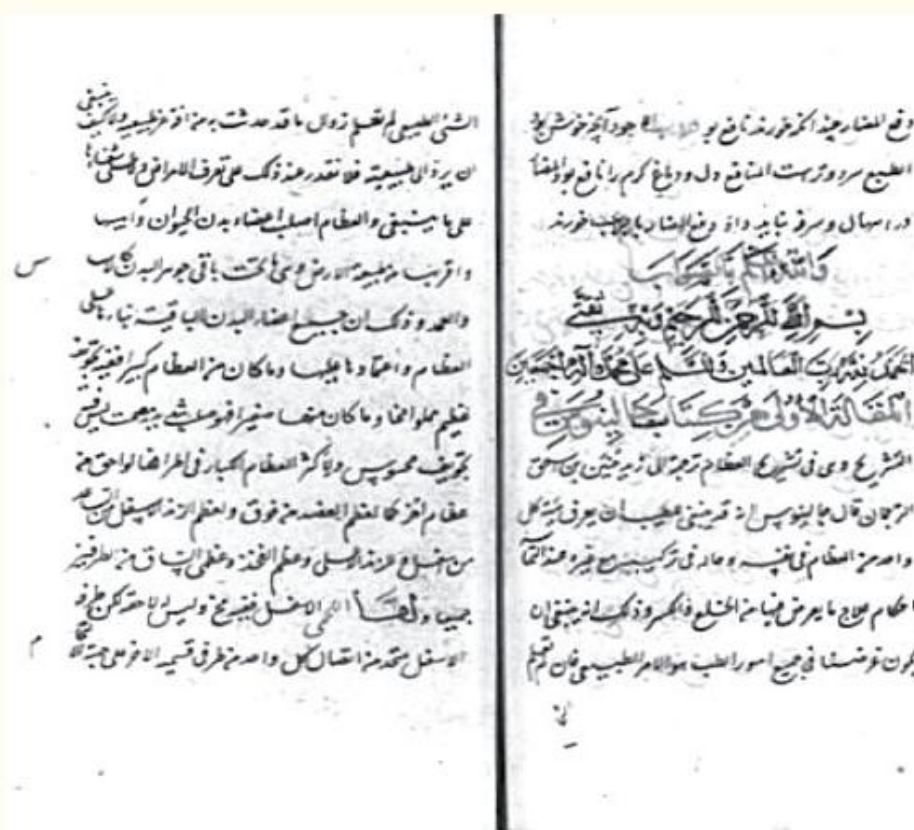 دفع المضار چند انکه خورند نافع بود جو و آنچه خوش بود
الطبع سرد و ترست المنافع دل و دماغ گرم را نافع بود المضار
در اسهال و سرفه نباید داد دفع المضار با خورند
والله اعلم بالصواب
بسم الله الرحمن الرحيم وبه ثقتي
الحمد لله رب العالمين والسلام على محمد وآله اجمعين
المقالة الاولى من كتاب جالينوس في
التشريح وهي في تشريح العظام ترجمة ابي زيد حنين بن اسحق
الترجمان قال جالينوس انه قد ينبغي للطبيب ان يعرف هيئة كل
واحد من العظام في نفسه وحاله في تركيبه مع غيره عند
احكام علاج ما يعرض فيها من الخلع والكسر وذلك انه ينبغي ان
يكون غرضنا في جميع امور الطب هو الامر الطبيعي فان لم تعلم
الشئ الطبيعي لم تعلم زوال ما قد حدثت به من افة عن طبيعته ولا كيف ينبغي
ان يرد الى طبيعته فلا نقدر عند ذلك على تعرف الامراض ولا شفائها
على ما ينبغي والعظام اصلب اعضاء بدن الحيوان وايبسها
واقربها من طبيعة الارض وهي تحت باقي جوهر البدن كالاساس
والعمد وذلك ان جميع اعضاء البدن الباقية بناءها على
العظام واعتمادها عليها وما كان من العظام كبيرا ففيه تجويف
عظيم مملو مخا وما كان منها صغيرا فهو صلب مصمت ليس
بتجويف محسوس ولاكثر العظام الكبار في اطرافها لواحق من
عظام اخر كما لعظم العضد من فوق ولعظم الزند الاسفل من الساعد
من اسفل وللزند الاعلى وعظم الفخذ وعظمى الساق من الطرفين
جميعا واما اللحى الاسفل ففيه مخ وليس له لاحقة لكن طرفه
الاسفل متحد من اتصال كل واحد من طرفي قسميه الاخر على جهة
س
م